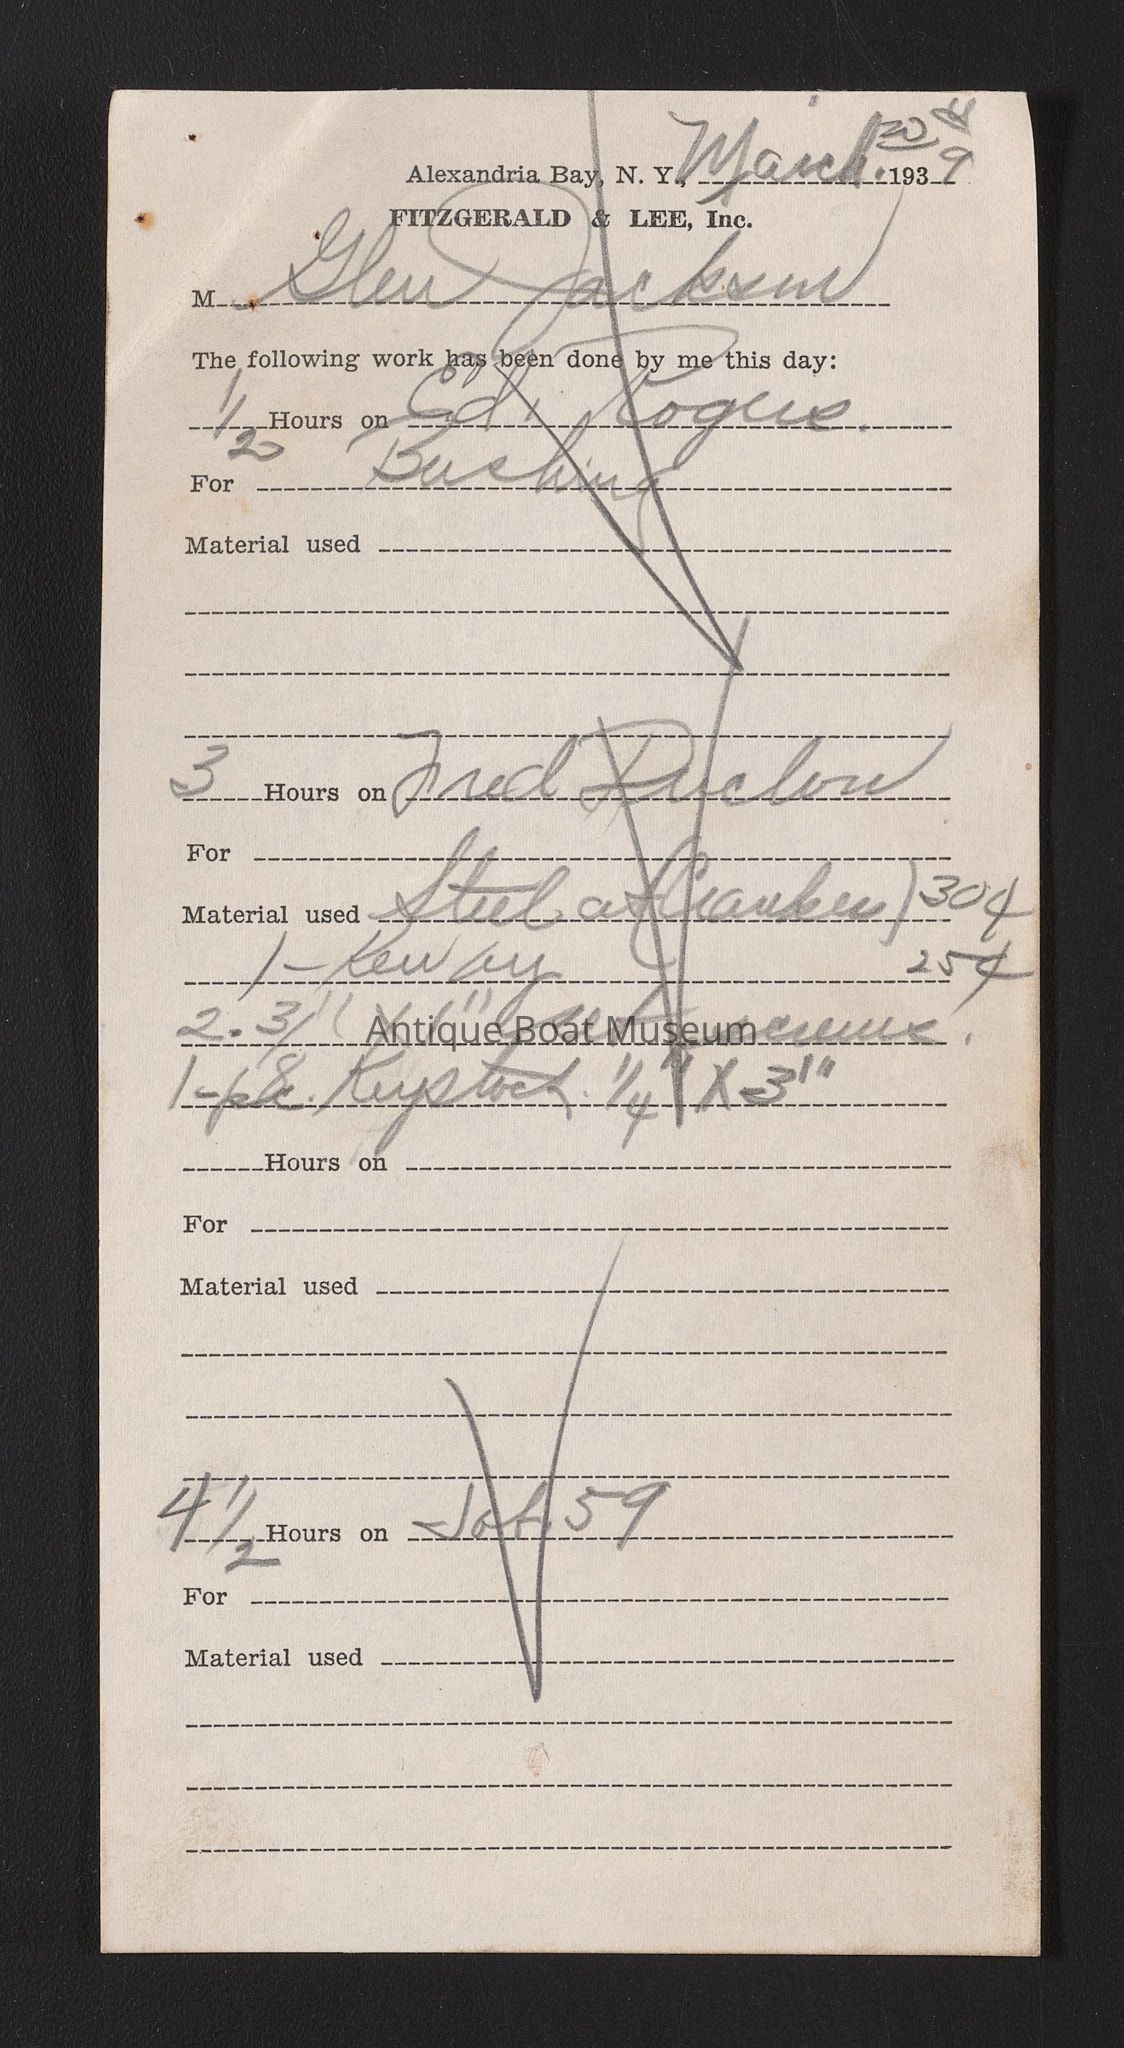 March 20th
Alexandria Bay, N. Y., 1939
FITZGERALD & LEE, Inc.
M Glen Jackson
The following work has been done by me this day:
1/2 Hours on Ed. Rogers.
For Bushing
Material used
3 Hours on Fred Duclow
For
Material used Steel at Cranker) 30¢
1- Keway 25¢
2. 3/8" X 1" set screws.
1-pc. Keystock. 1/4" X 3"
Antique Boat Museum
Hours on
For
Material used
4 1/2 Hours on Job. 59
For
Material used